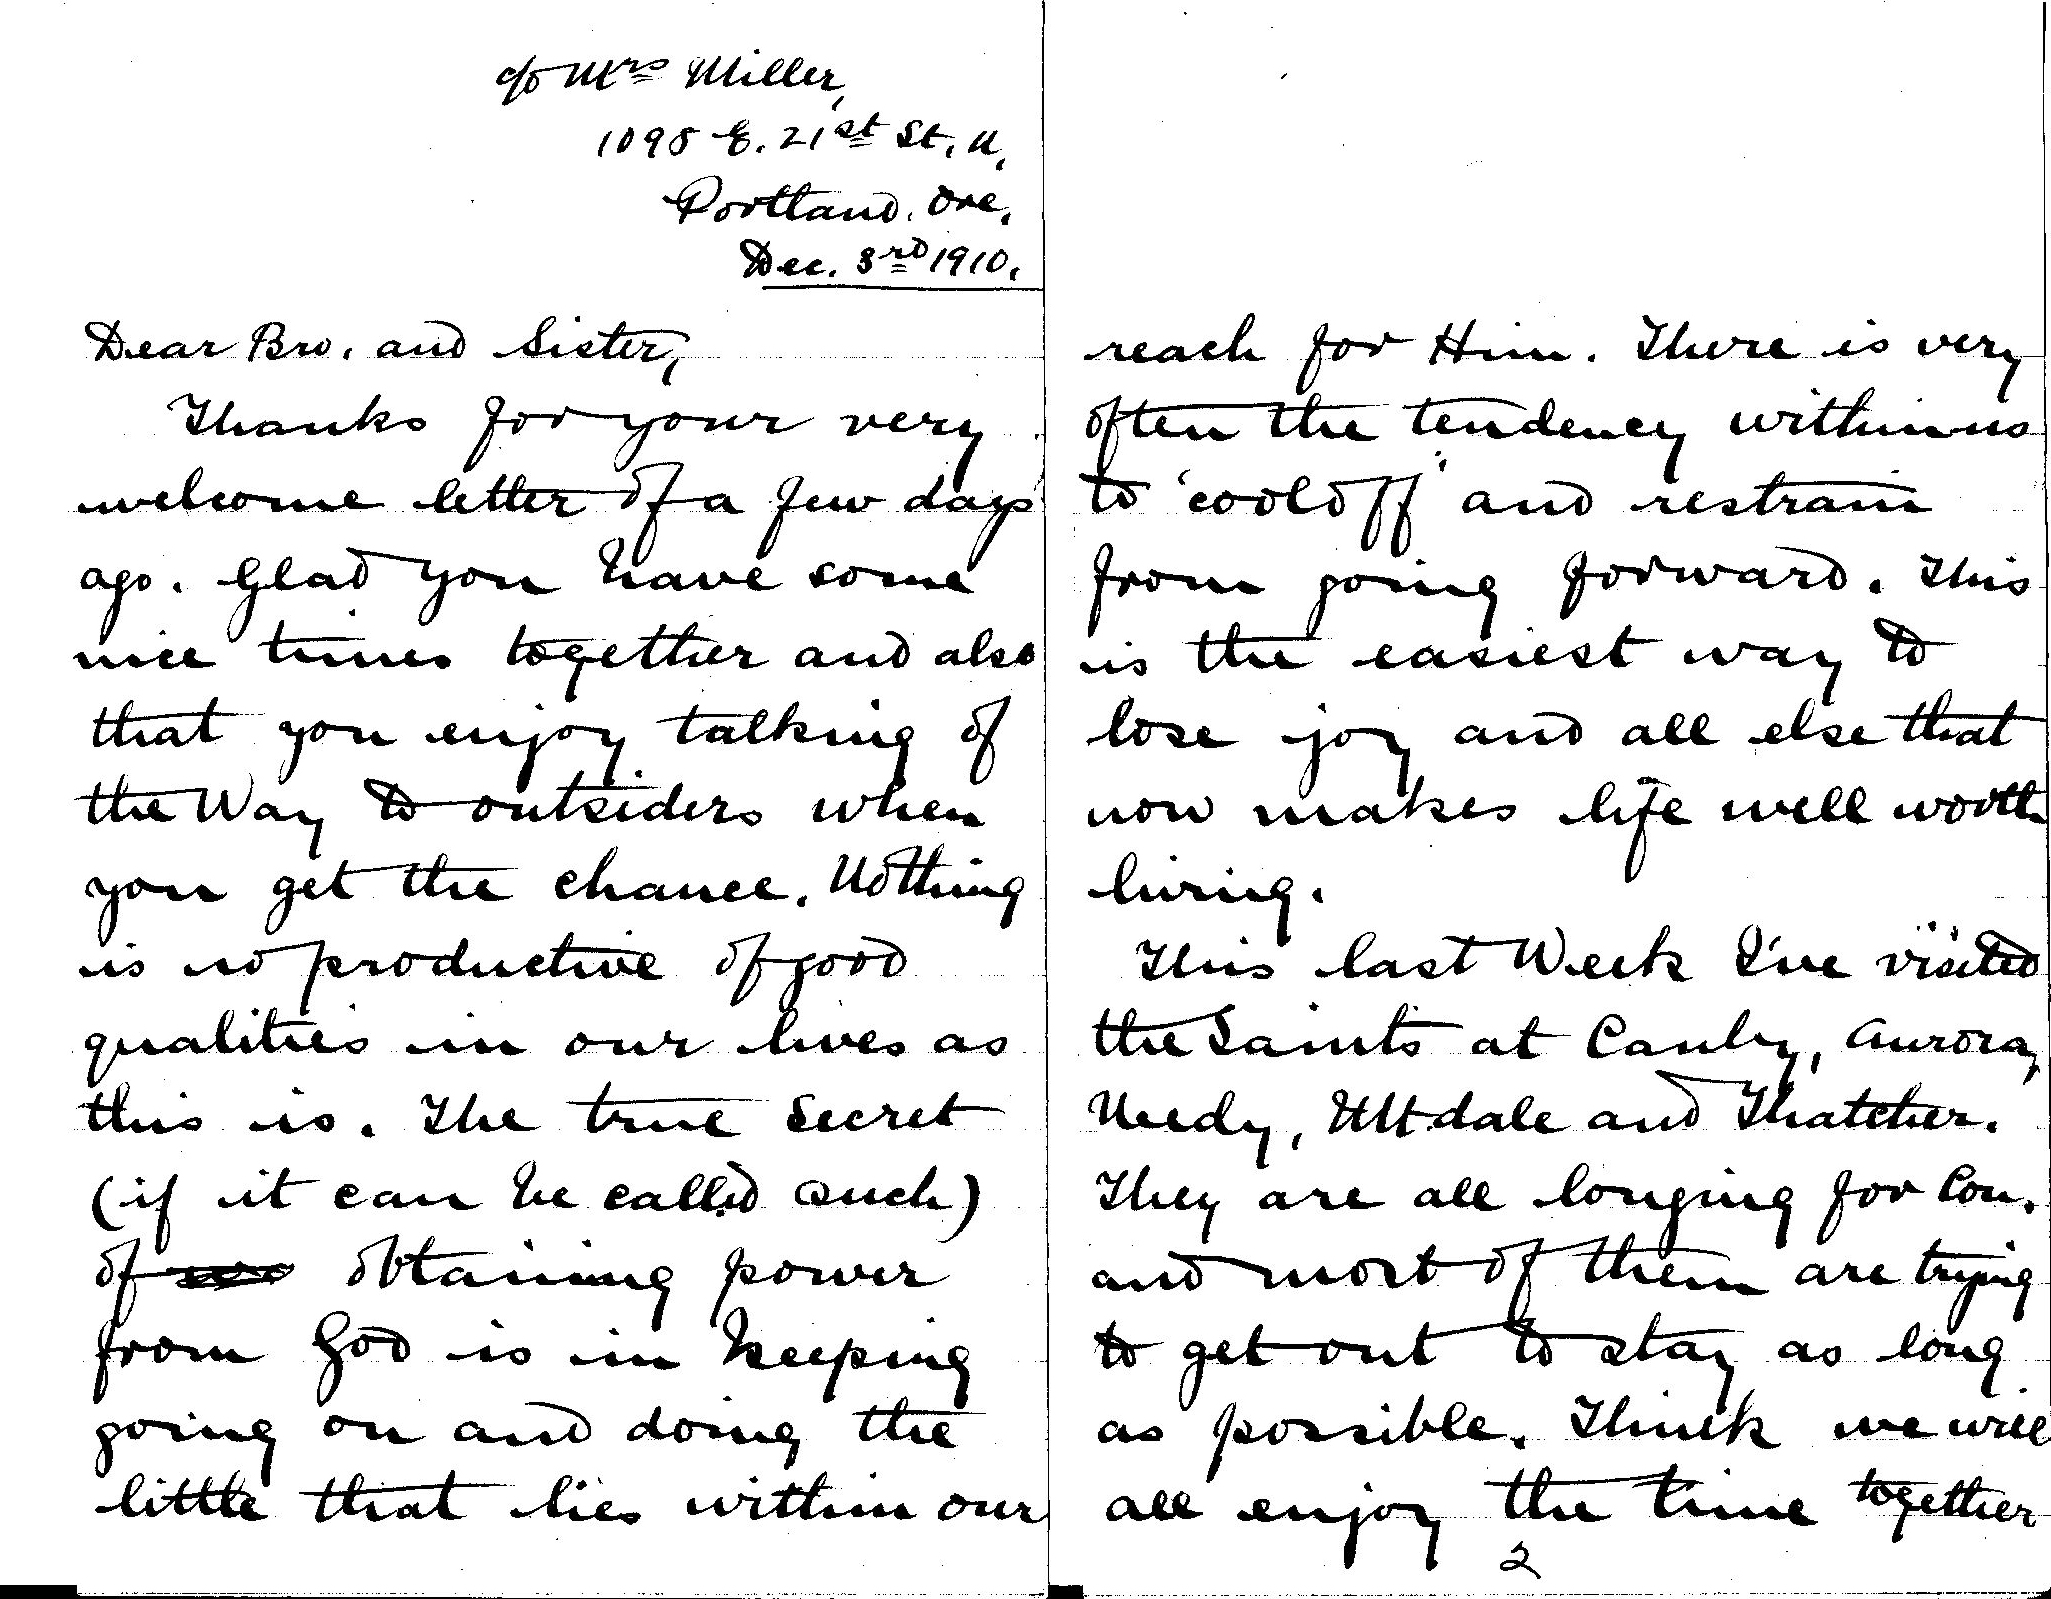 c/o Mrs Miller,
1098 E. 21st St. N.
Portland. Ore.
Dec. 3rd 1910.
Dear Bro. and Sister,
Thanks for your very
welcome letter of a few days
ago. Glad you have some
nice times together and also
that you enjoy talking of
the Way to outsiders when
you get the chance. Nothing
is so productive of good
qualities in our lives as
this is. The true secret
(if it can be called such)
of obtaining power
from God is in keeping
going on and doing the
little that lies within our
reach for Him. There is very
often the tendency within us
to 'cool off' and restrain
from going forward. This
is the easiest way to
lose joy and all else that
now makes life well worth
living.
This last Week I've visited
the Saints at Canby, Aurora,
Needy, and Thatcher.
They are all longing for Con.
and most of them are trying
to get out to stay as long
as possible. Think we will
all enjoy the time together
2